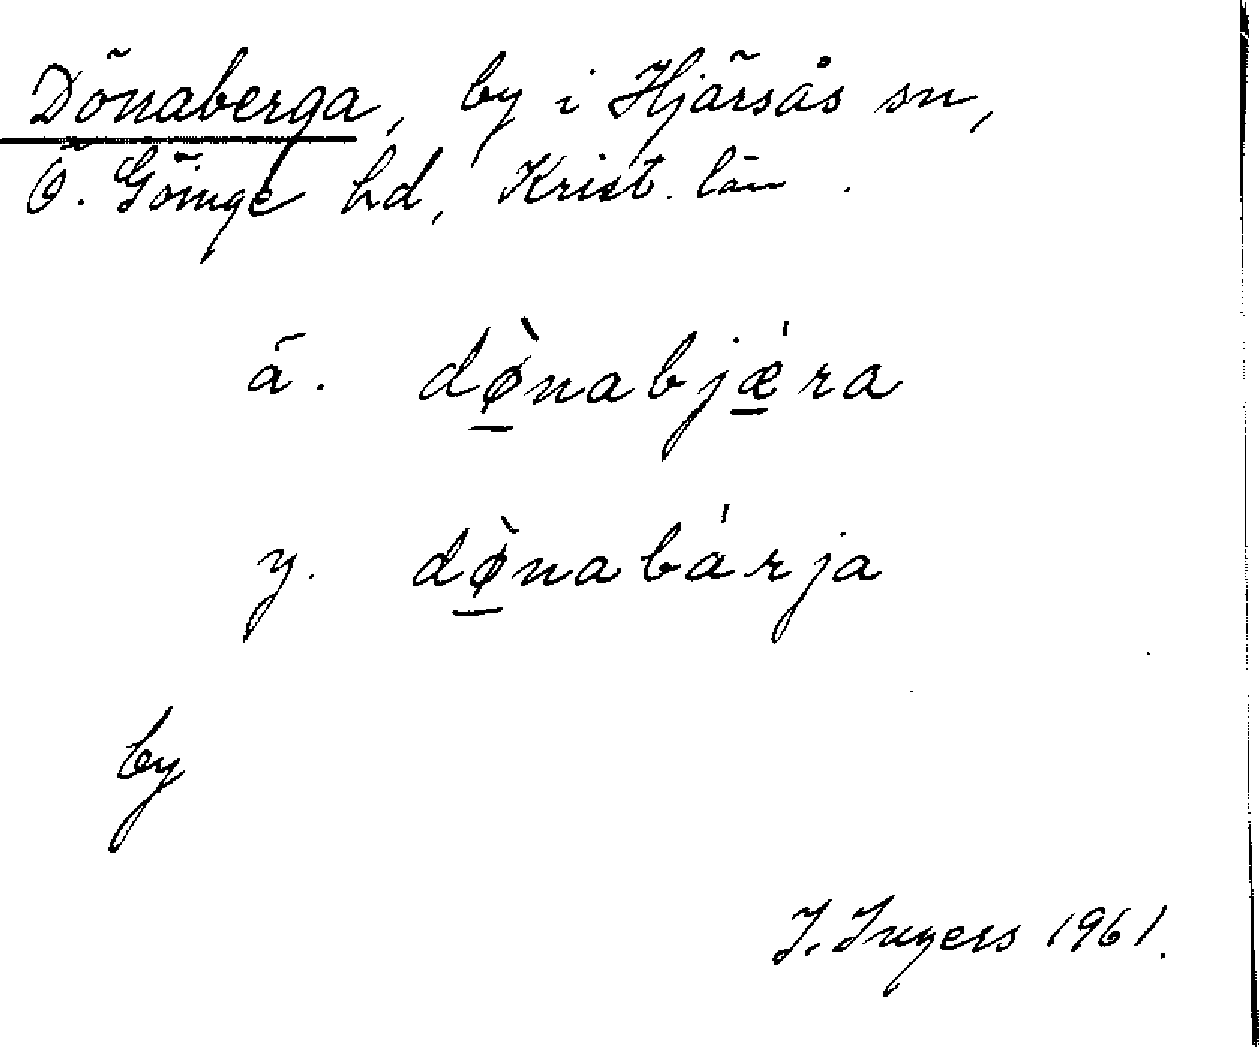 Dönaberga, by i Hjärsås sn,
Ö. Göinge hd, Krist. län.
ä. dø̱̀nabjǽ̱ra
y. dø̱̀nabárja
by
I. Ingers 1961.